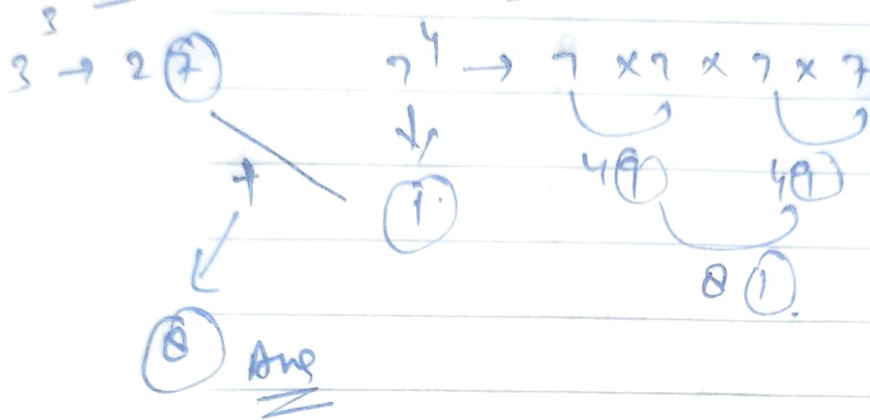 3³ → 27 7⁴ → 7 × 7 × 7 × 7
49 49
+ 1
81
8 Ans